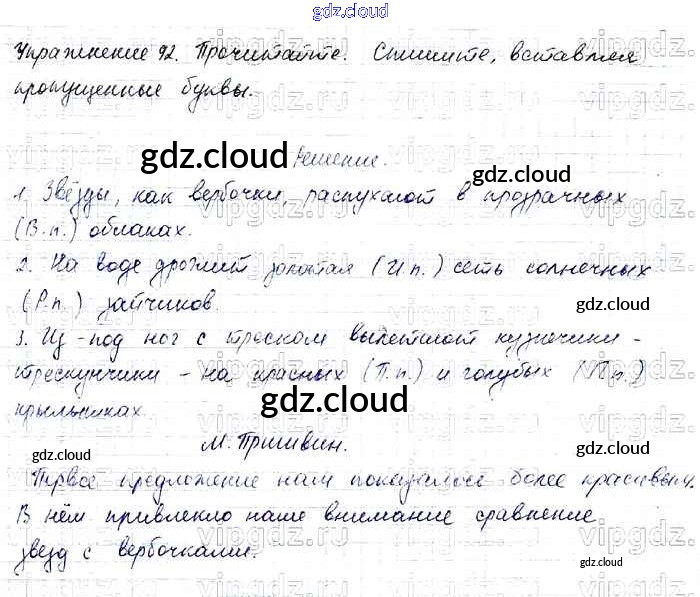 gdz.cloud
Упражнение 92. Прочитайте. Спишите, вставляя
пропущенные буквы.
gdz.cloud Решение.
1. Звёзды, как вербочки, распухают в прозрачных
gdz.cloud
(В.п.) облаках.
2. На воде дрожит золотая (И.п.) сеть солнечных
(Р.п.) зайчиков.
gdz.cloud
3. Из-под ног с треском вылетают кузнечики-
трескунчики - на красных (П.п.) и голубых (П.п.)
gdz.cloud
крыльышках.
М. Пришвин.
gdz.cloud
gdz.cloud
Первое предложение нам показалось более красивым.
В нём привлекло наше внимание сравнение
звёзд с вербочками.
gdz.cloud